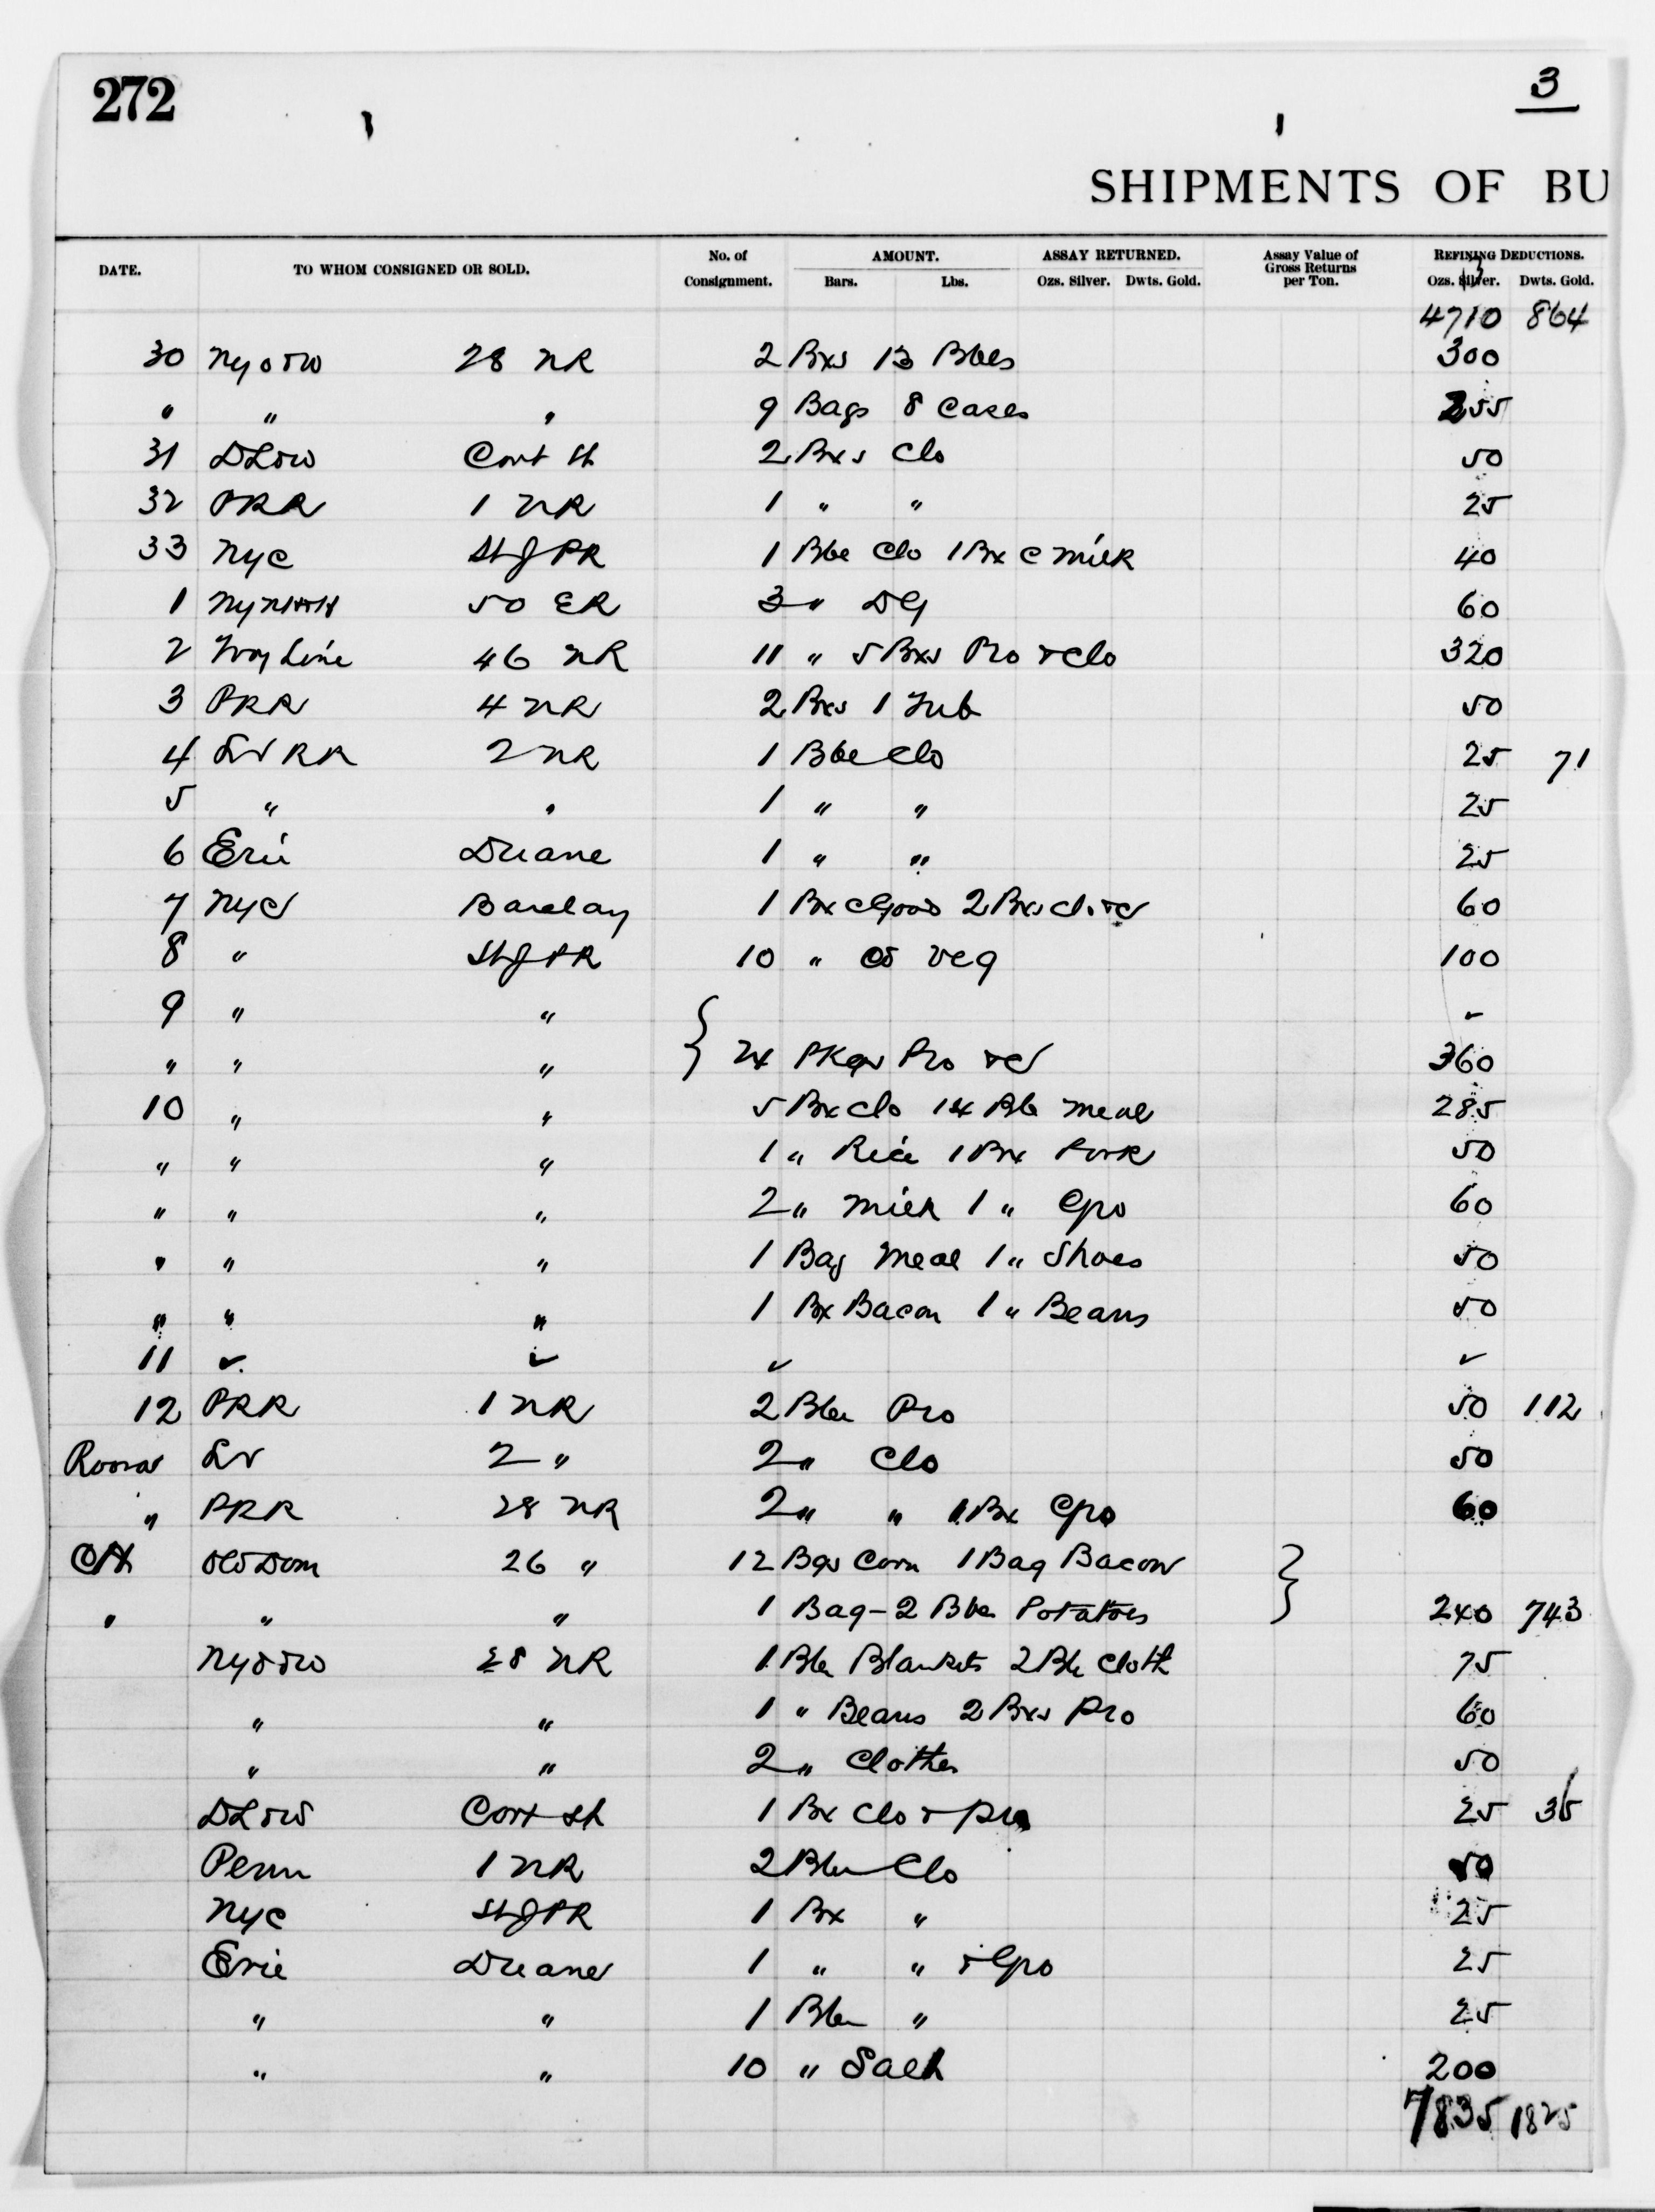 272
3
SHIPMENTS OF BU
DATE. TO WHOM CONSIGNED OR SOLD. No. of Consignment. AMOUNT. Bars. Lbs. ASSAY RETURNED. Ozs. Silver. Dwts. Gold. Assay Value of Gross Returns per Ton. REFINING DEDUCTIONS. Ozs. Silver. Dwts. Gold.
4710 864
30 NyoδW 28 NR 2 Bxs 13 Bbls 300
" " " 9 Bags 8 Cases 255
31 DL&W Cort St 2 Bxs Clo 50
32 PRR 1 NR 1 " " 25
33 NYC StJPR 1 Bbl Clo 1 Bx C Milk 40
1 NyNH&H 50 ER 3 " DG 60
2 Troy Line 46 NR 11 " 5 Bxs Pro & Clo 320
3 PRR 4 NR 2 Bxs 1 Tub 50
4 LVRR 2 NR 1 Bbl Clo 25 71
5 " " 1 " " 25
6 Erie Duane 1 " " 25
7 NYC Barclay 1 Bx C Goods 2 Bxs 60
8 " StJPR 10 " Veg 100
9 " "
" " " } 24 Pkgs Pro &c 360
10 " " 5 Bx Clo 14 Bbl Meal 285
" " " 1 " Rice 1 Bx Pork 50
" " " 2 " Milk 1 " Gro 60
" " " 1 Bag Meal 1 " Shoes 50
" " " 1 Bx Bacon 1 " Beans 50
11 ✓ ✓ ✓ ✓
12 PRR 1 NR 2 Bbls Pro 50 112
LV 2 " 2 " Clo 50
" PRR 28 NR 2 " " 1 Bx Gro 60
Old Dom 26 " 12 Bgs Corn 1 Bag Bacon }
" " " 1 Bag - 2 Bbls Potatoes 240 743
Nyo&W 28 NR 1 Bbl Blankets 2 Bbl Cloth 75
" " 1 " Beans 2 Bxs Pro 60
" " 2 " Clothes 50
DL&W Cort St 1 Bx Clo & Pro 25 36
Penn 1 NR 2 Bbls Clo 50
NYC StJPR 1 Bx " 25
Erie Duane 1 " " & Gro 25
" " 1 Bbl " 25
" " 10 " 200
7835 1825